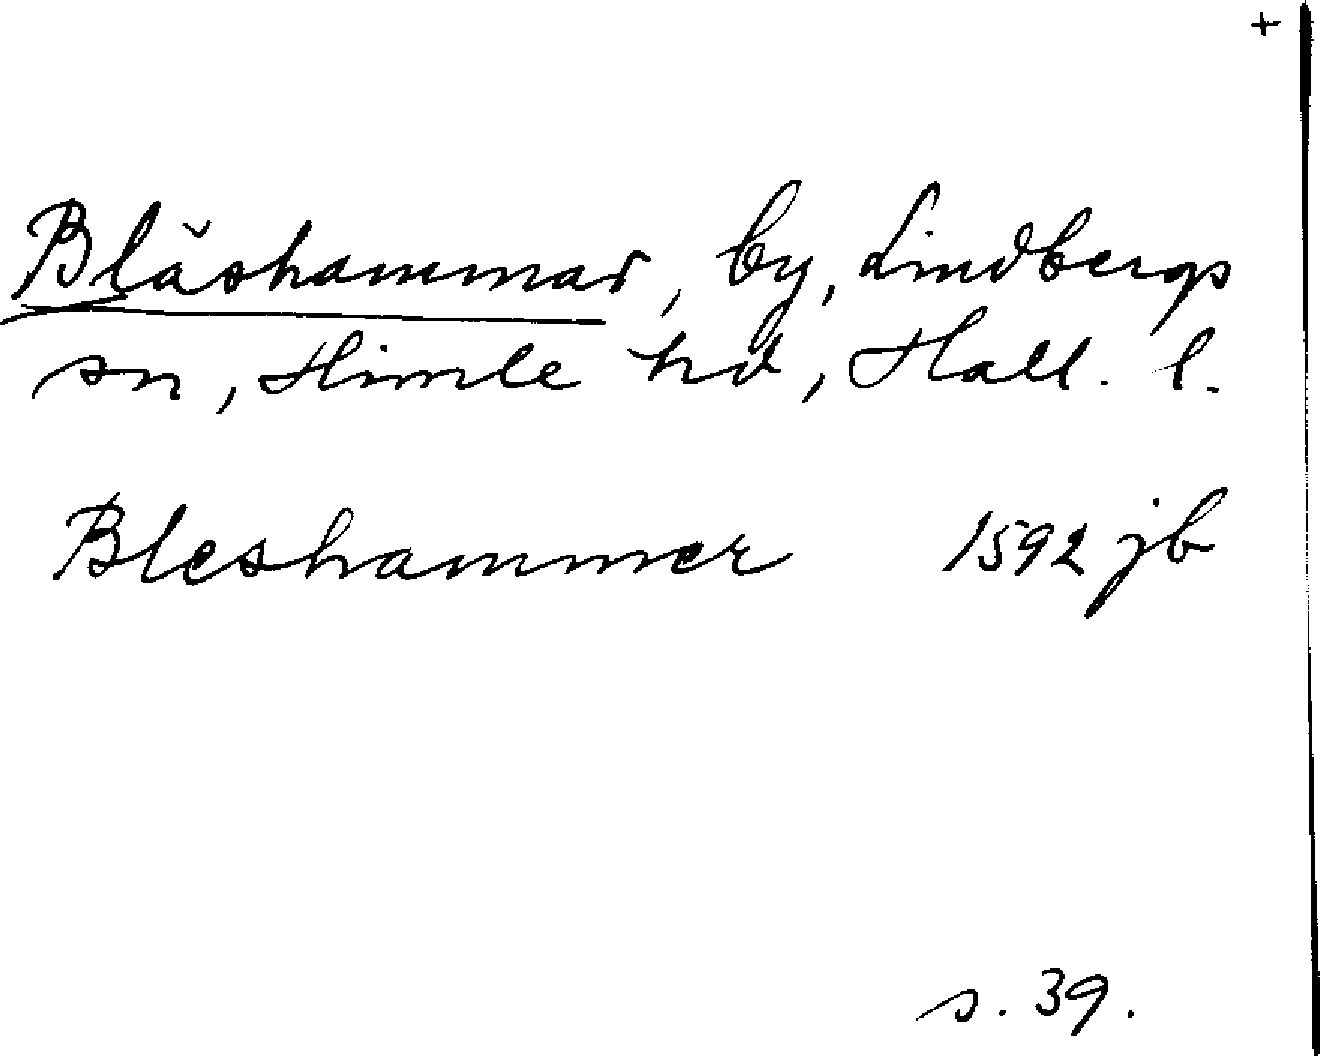 +
Blåshammar, by, Lindbergs
sn, Himle hd, Hall. l.
Bleshammer 1592 jb
s. 39.